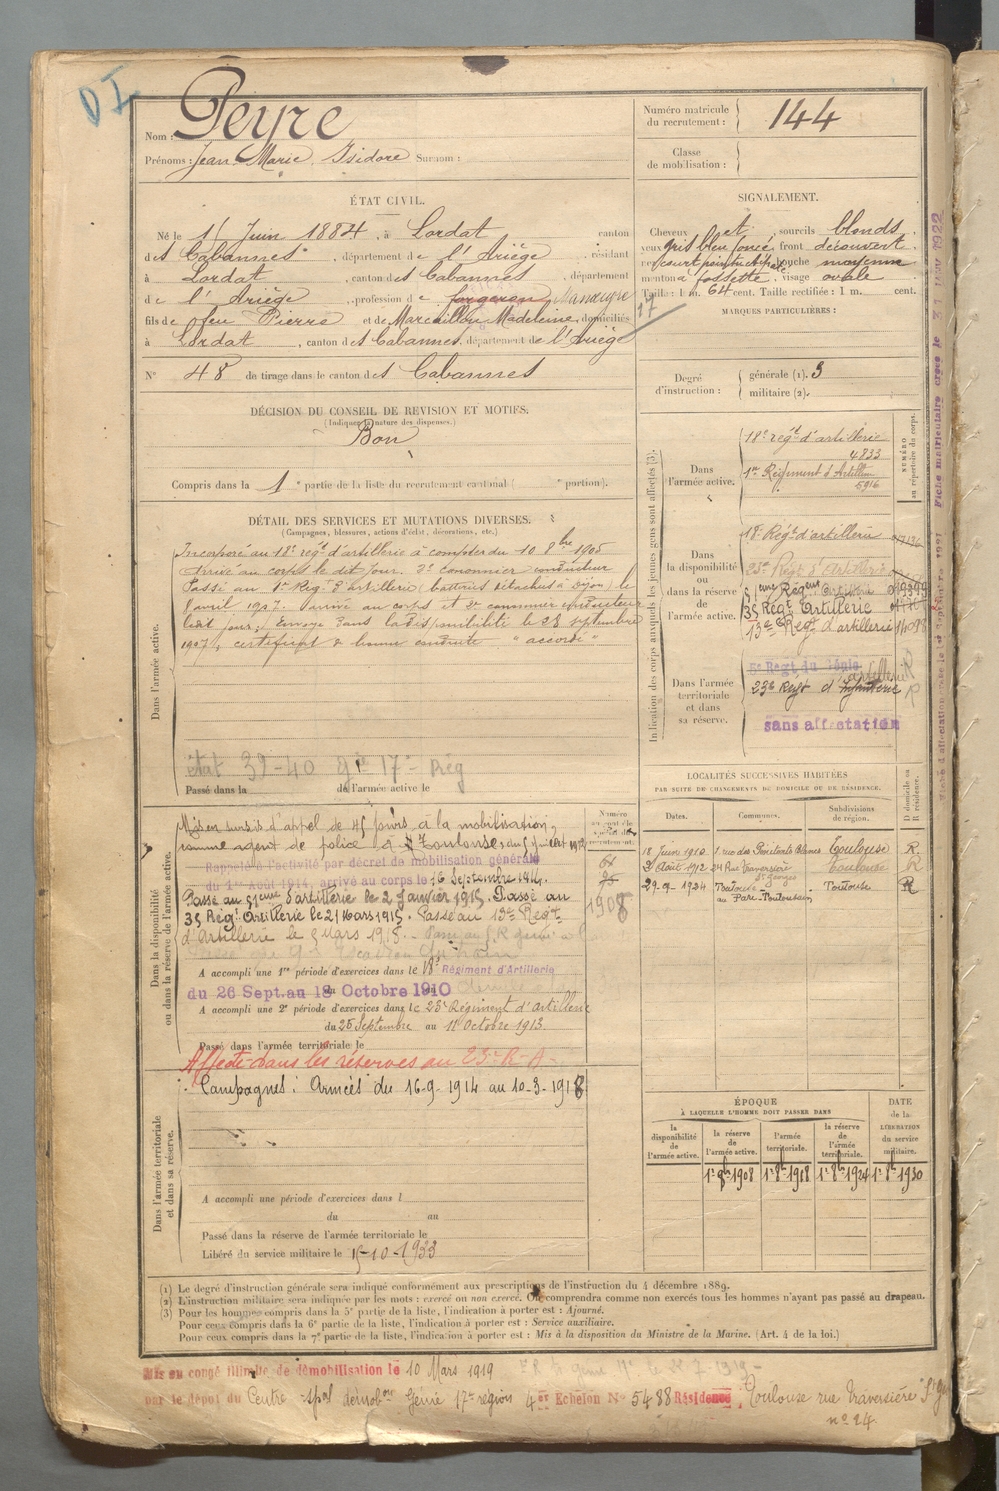 D I
Nom : Peyre
Prénoms : Jean Marie Isidore Surnom :
Numéro matricule du recrutement : 144
Classe de mobilisation :
ÉTAT CIVIL.
Né le 1 Juin 1884, à Lordat canton
des Cabannes, département de l'Ariège, résidant
à Lordat, canton des Cabannes, département
de l'Ariège, profession de forgeron Manœuvre
fils de feu Pierre et de Marcaillou Madeleine, domiciliés
à Lordat, canton des Cabannes, département de l'Ariège
17
N° 48 de tirage dans le canton des Cabannes
SIGNALEMENT.
Cheveux et sourcils blonds
yeux gris bleu foncé, front découvert
bouche moyenne
menton à fossette, visage ovale
Taille : 1 m. 64 cent. Taille rectifiée : 1 m. cent.
MARQUES PARTICULIÈRES :
Degré d'instruction : générale (1). 3
militaire (2).
DÉCISION DU CONSEIL DE REVISION ET MOTIFS.
(Indiquer la nature des dispenses.)
Bon
Compris dans la 1re partie de la liste du recrutement cantonal ( portion).
DÉTAIL DES SERVICES ET MUTATIONS DIVERSES.
(Campagnes, blessures, actions d'éclat, décorations, etc.)
Dans l'armée active.
Incorporé au 18e régt d'artillerie à compter du 10 8bre 1905
Arrivé au corps le dit jour. 2e canonnier conducteur
Passé au 1er Régt d'artillerie (batteries détachées à Dijon) le
avril 1907. arrivé au corps et 2e canonnier conducteur
ledit jour; Envoyé dans la disponibilité le 28 septembre
1907, certificat de bonne conduite "accordé"
état 39-40 17e Rég
Passé dans la de l'armée active le
Indication des corps auxquels les jeunes gens sont affectés (3).
NUMÉRO au répertoire du corps.
Dans l'armée active.
18e régt d'artillerie
4833
1er Régiment d'Artillerie
5916
Dans la disponibilité ou dans la réserve de l'armée active.
18e Régt d'artillerie
23e Régt d'Artillerie
51eme Régem Artillerie
35 Régt Artillerie
13e Régt d'artillerie
Dans l'armée territoriale et dans sa réserve.
5e Régt du Génie
23e Régt d'infanterie artillerie
sans affectation
Fiche matriculaire créée le
Dans la disponibilité ou dans la réserve de l'armée active.
Mis en sursis d'appel de 45 jours à la mobilisation,
comme agent de police à Toulouse du 5 juillet 1912
Rappelé à l'activité par décret de mobilisation générale
du 1er Août 1914, arrivé au corps le 16 Septembre 1914.
Passé au 51eme d'artillerie le 2 Janvier 1915. Passé au
35 Régt Artillerie le 21 Mars 1915. Passé au 13e Régt
d'Artillerie le 5 Mars 1918.
1908
A accompli une 1re période d'exercices dans le 18e Régiment d'Artillerie
du 26 Sept. au 18 Octobre 1910
A accompli une 2e période d'exercices dans le 23e Régiment d'artillerie
du 25 Septembre au 11 Octobre 1913.
Passé dans l'armée territoriale le
Affecté dans les réserves au 23e R-A-
Dans l'armée territoriale et dans sa réserve.
Campagnes : Armées du 16-9-1914 au 10-3-1918
A accompli une période d'exercices dans l
du au
Passé dans la réserve de l'armée territoriale le
Libéré du service militaire le 15-10-1933
LOCALITÉS SUCCESSIVES HABITÉES
PAR SUITE DE CHANGEMENTS DE DOMICILE OU DE RÉSIDENCE.
Dates. Communes. Subdivisions de région. D domicile ou R résidence.
18 Juin 1910 1 rue des Pénitents Blancs Toulouse R
2 Août 1912 24 Rue Traversière St Georges Toulouse R
29-9-1924 Toulouse au Parc Toulousain Toulouse R
ÉPOQUE
À LAQUELLE L'HOMME DOIT PASSER DANS
la disponibilité de l'armée active.
la réserve de l'armée active.
l'armée territoriale.
la réserve de l'armée territoriale.
DATE de la LIBÉRATION du service militaire.
1er 8bre 1908 1er 8bre 1918 1er 8bre 1924 1er 8bre 1930
(1) Le degré d'instruction générale sera indiqué conformément aux prescriptions de l'instruction du 4 décembre 1889.
(2) L'instruction militaire sera indiquée par les mots : exercé ou non exercé. On comprendra comme non exercés tous les hommes n'ayant pas passé au drapeau.
(3) Pour les hommes compris dans la 5e partie de la liste, l'indication à porter est : Ajourné.
Pour ceux compris dans la 6e partie de la liste, l'indication à porter est : Service auxiliaire.
Pour ceux compris dans la 7e partie de la liste, l'indication à porter est : Mis à la disposition du Ministre de la Marine. (Art. 4 de la loi.)
Mis en congé illimité de démobilisation le 10 Mars 1919
par le dépôt du Centre spal démobon Génie 17e région 4e Echelon N° 5488 Résidence Toulouse rue Traversière St G
n° 24